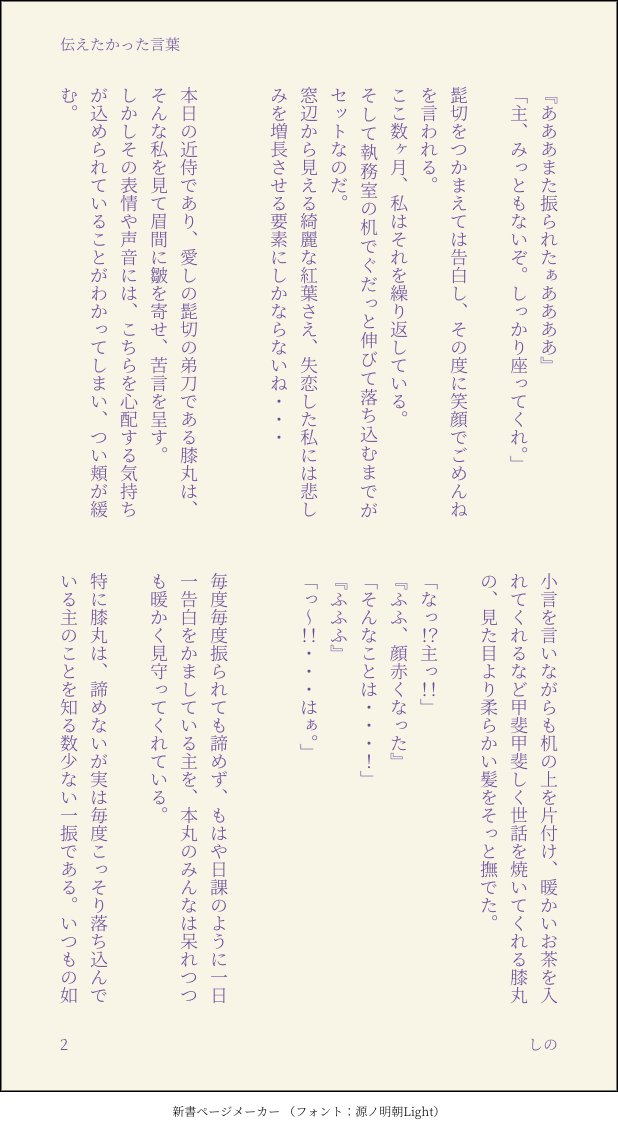 伝えたかった言葉
『あああまた振られたぁああああ』
「主、みっともないぞ。しっかり座ってくれ。」
髭切をつかまえては告白し、その度に笑顔でごめんね
を言われる。
ここ数ヶ月、私はそれを繰り返している。
そして執務室の机でぐだっと伸びて落ち込むまでが
セットなのだ。
窓辺から見える綺麗な紅葉さえ、失恋した私には悲し
みを増長させる要素にしかならないね・・・
本日の近侍であり、愛しの髭切の弟刀である膝丸は、
そんな私を見て眉間に皺を寄せ、苦言を呈す。
しかしその表情や声音には、こちらを心配する気持ち
が込められていることがわかってしまい、つい頬が緩
む。
小言を言いながらも机の上を片付け、暖かいお茶を入
れてくれるなど甲斐甲斐しく世話を焼いてくれる膝丸
の、見た目より柔らかい髪をそっと撫でた。
「なっ!?主っ!!」
『ふふ、顔赤くなった』
「そんなことは・・・！」
『ふふふ』
「っ〜!!・・・はぁ。」
毎度毎度振られても諦めず、もはや日課のように一日
一告白をかましている主を、本丸のみんなは呆れつつ
も暖かく見守ってくれている。
特に膝丸は、諦めないが実は毎度こっそり落ち込んで
いる主のことを知る数少ない一振である。いつもの如
2
しの
新書ページメーカー （フォント：源ノ明朝Light）